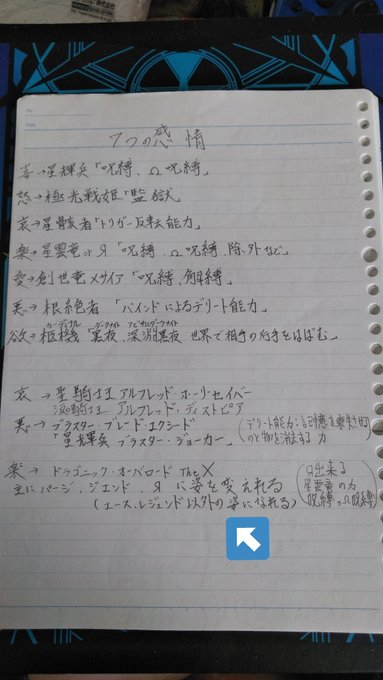 No.
Date
7つの感情
喜→星輝兵「呪縛、Ω呪縛」
怒→極光戦姫「監獄」
哀→星骸者「トリガー反転能力」
楽→星雲竜 or Я「呪縛、Ω呪縛、除外など」
愛→創世竜メサイア「呪縛、解縛」
悪→根絶者「バインドによるデリート能力」
カーディナル ダークナイト アビサルダークナイト
欲→枢機「黒夜、深淵黒夜 世界で相手の行手をはばむ」
哀→聖騎士王 アルフレッド・ホーリーセイバー
騎士王 アルフレッド・ディストピア
悪→ブラスター・ブレード・エクシード
「星輝兵 ブラスター・ジョーカー」
(デリート能力:記憶を喪失
物を消去する 力)
楽→ドラゴニック・オーバーロード The X
主にバージ、ジエンド、Я に姿を変えれる
(エース、レジェンド以外の姿になれる)
(Я出来る
星雲竜の力
呪縛、Ω呪縛)